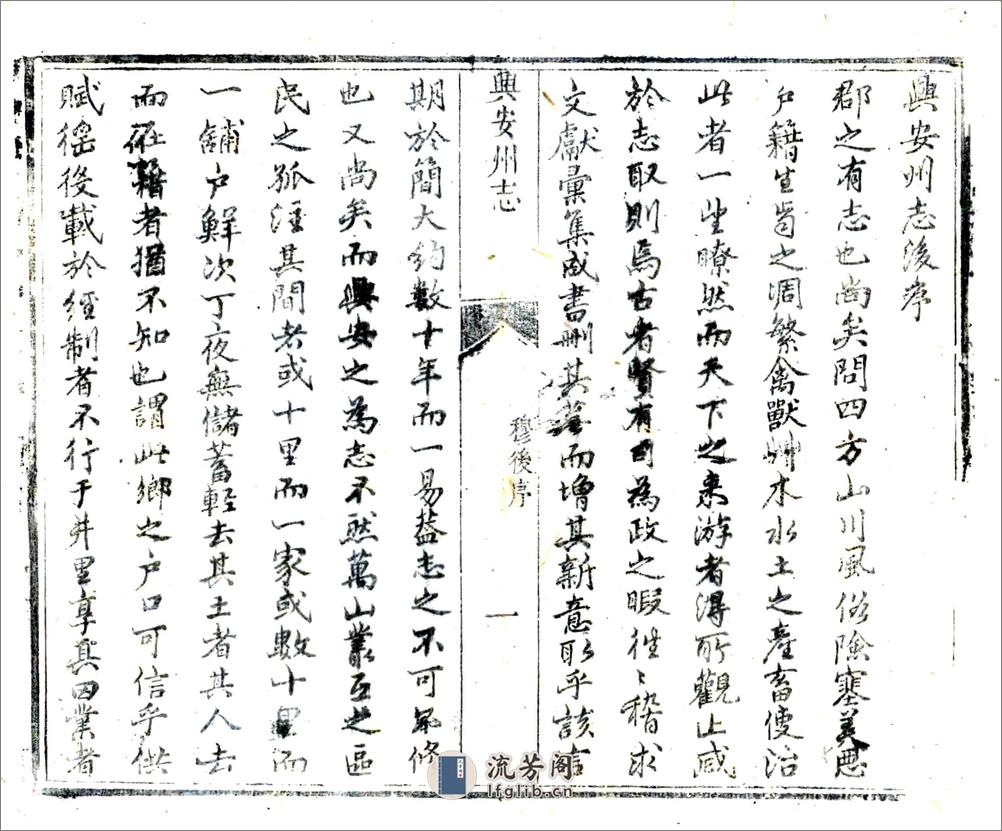 興安州志後序
郡之有志也尚矣問四方山川風俗險塞美惡
戶籍生齒之凋繁禽獸艸木水土之產畜使治
此者一望瞭然而天下之來游者得所觀止咸
於志取則焉古者賢有司為政之暇徃〻稽求
文獻彙集成書刪其舊而增其新意取乎該言
興安州志
穆後序
一
期於簡大約數十年而一易葢志之不可不修
也又尚矣而興安之為志不然萬山叢互之區
民之孤涇其間者或十里而一家或數十里而
一舖戶鮮次丁夜無儲蓄輕去其土者其人去
而在籍者猶不知也謂此鄉之戶口可信乎供
賦徭後載於經制者不行于井里享其田業者
流芳阁
lfglib.cn